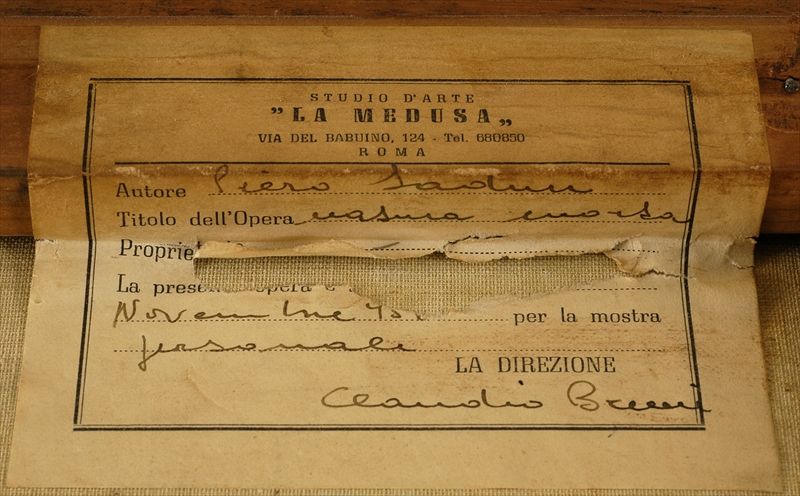 STUDIO D'ARTE
"LA MEDUSA„
VIA DEL BABUINO, 124 - Tel. 680850
ROMA
Autore Piero Sadun
Titolo dell'Opera natura morta
Proprie
La presen opera è
Novembre per la mostra
personale
LA DIREZIONE
Claudio Bruni